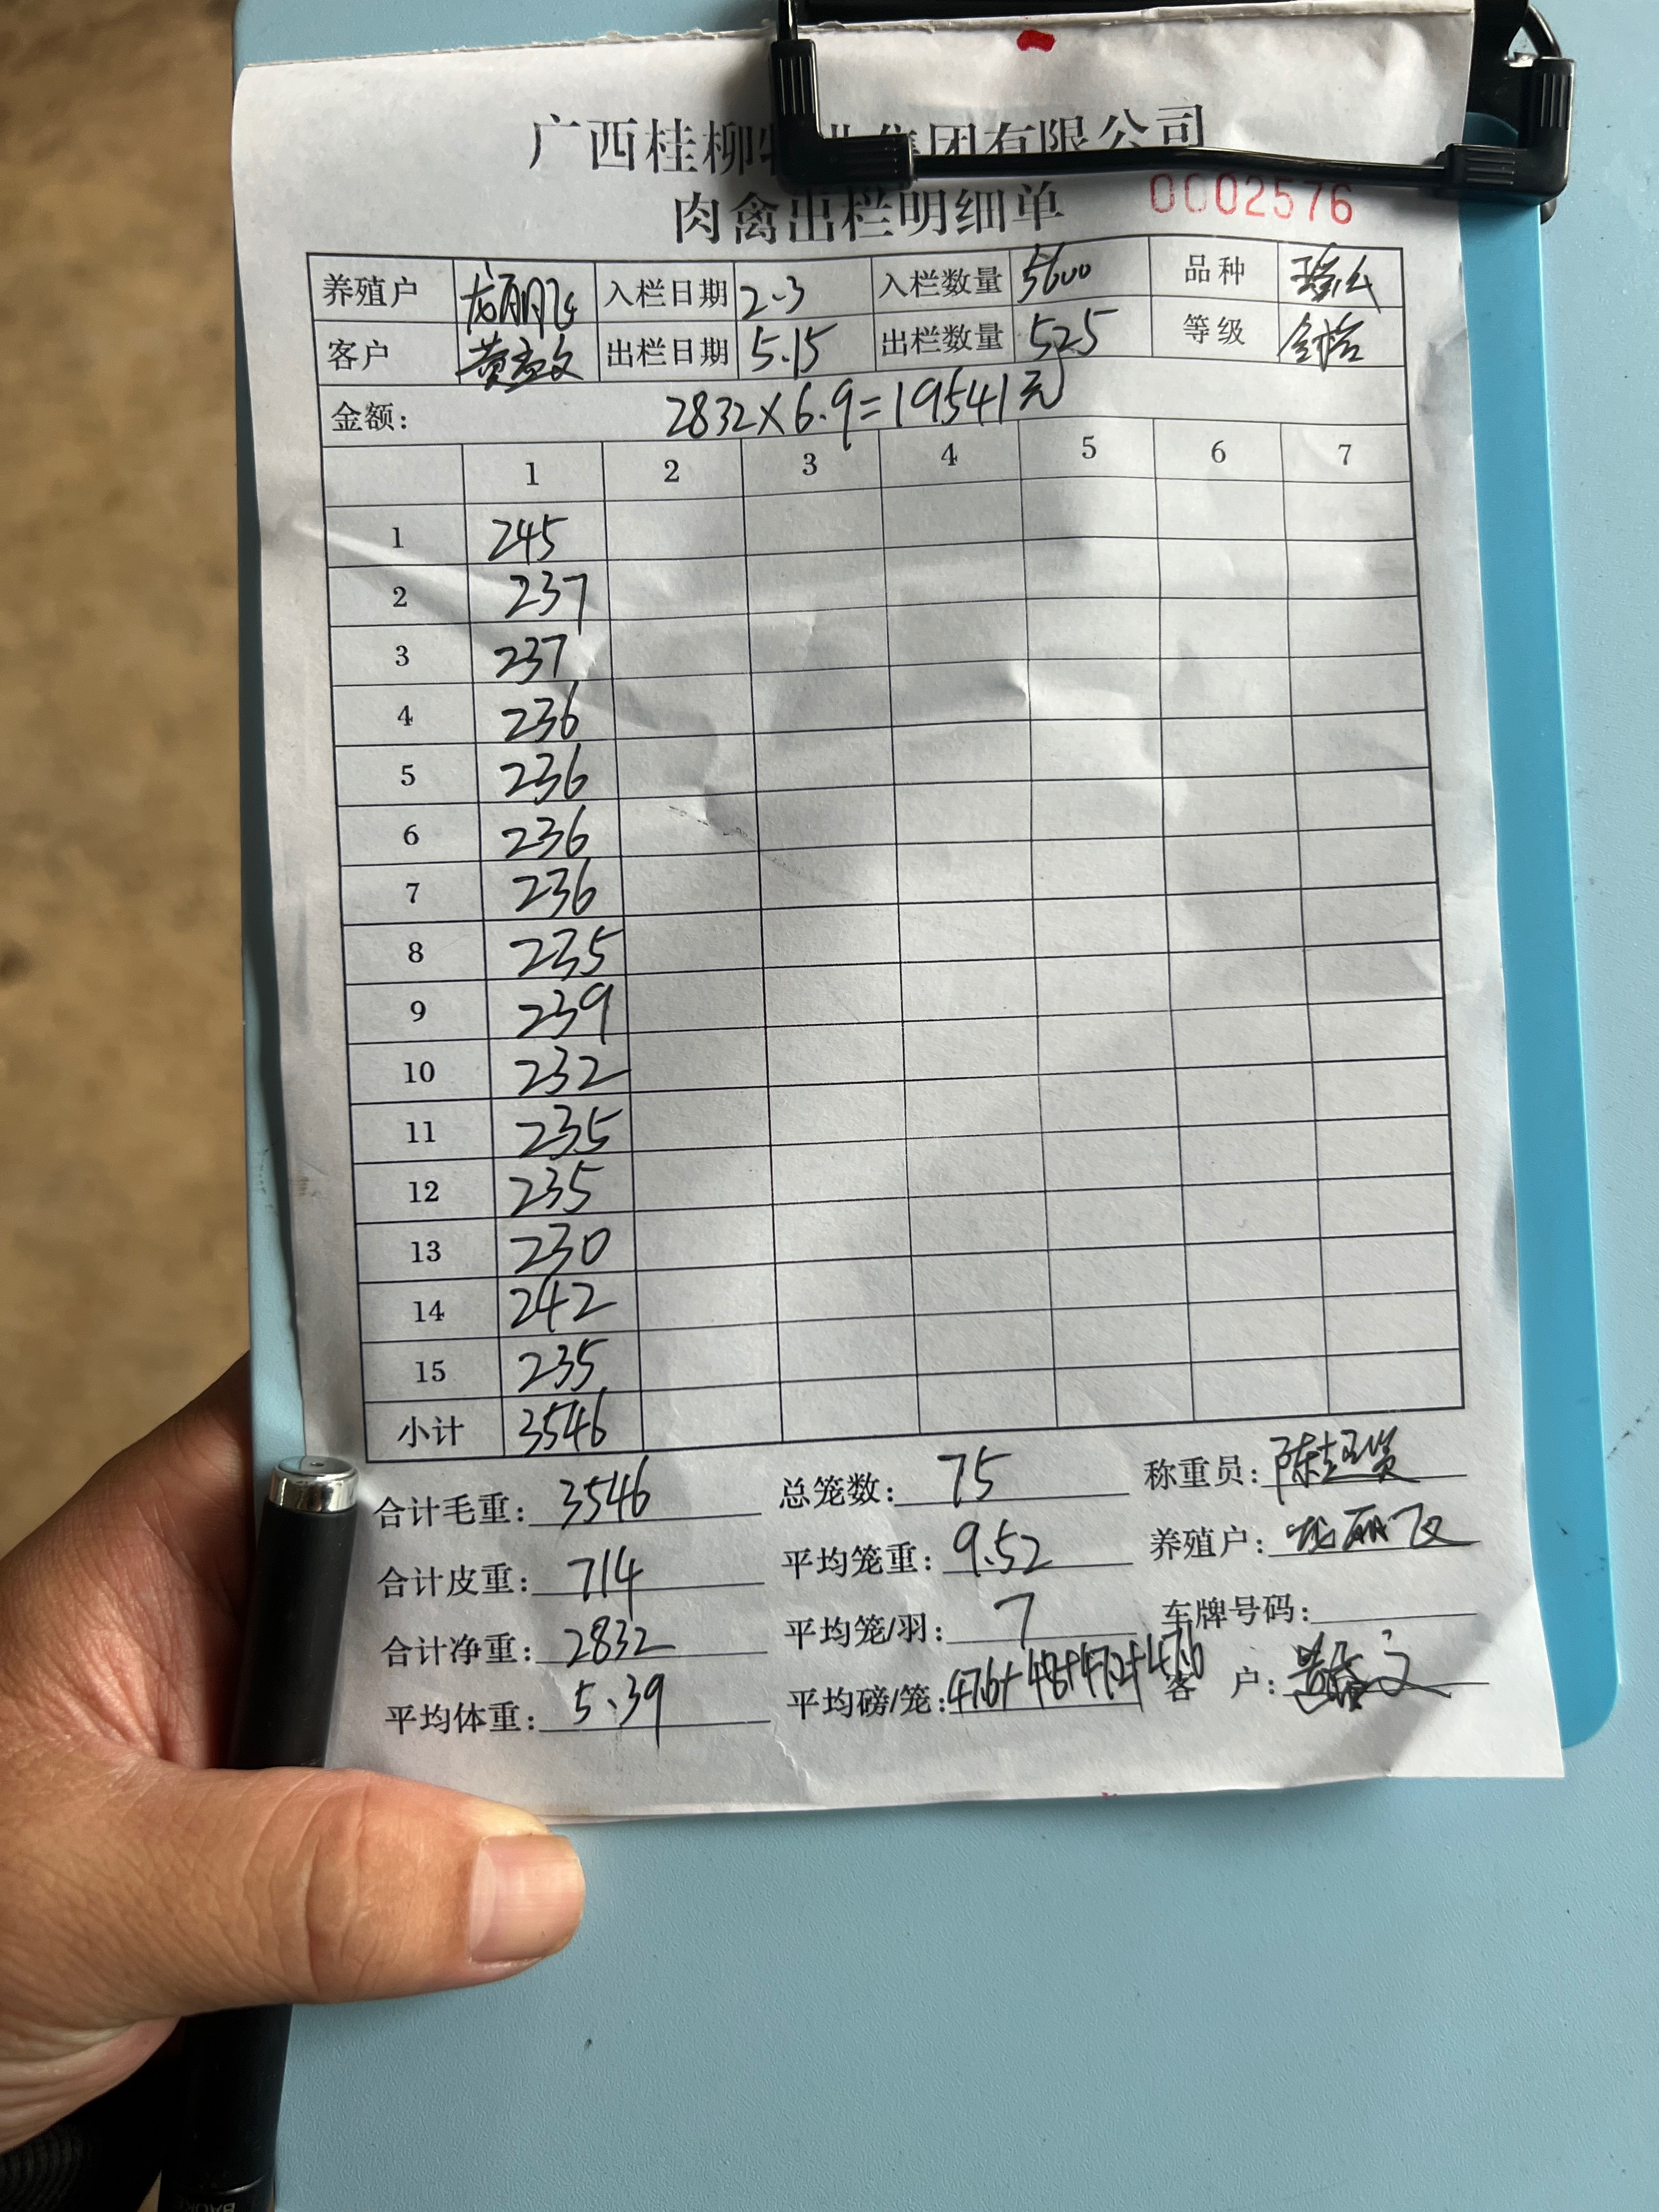 广西桂柳牧业集团有限公司
肉禽出栏明细单 0002576
养殖户 龙丽飞 入栏日期 2.3 入栏数量 5600 品种
客户 出栏日期 5.15 出栏数量 525 等级 合格
金额: 2832×6.9=19541元
1 2 3 4 5 6 7
1 245
2 237
3 237
4 236
5 236
6 236
7 236
8 235
9 239
10 232
11 235
12 235
13 230
14 242
15 235
小计 3546
合计毛重: 3546 总笼数: 75 称重员:
合计皮重: 714 平均笼重: 9.52 养殖户: 龙丽飞
合计净重: 2832 平均笼/羽: 7 车牌号码:
平均体重: 5.39 平均磅/笼: 47.6+48+47.2+47.6 客 户: